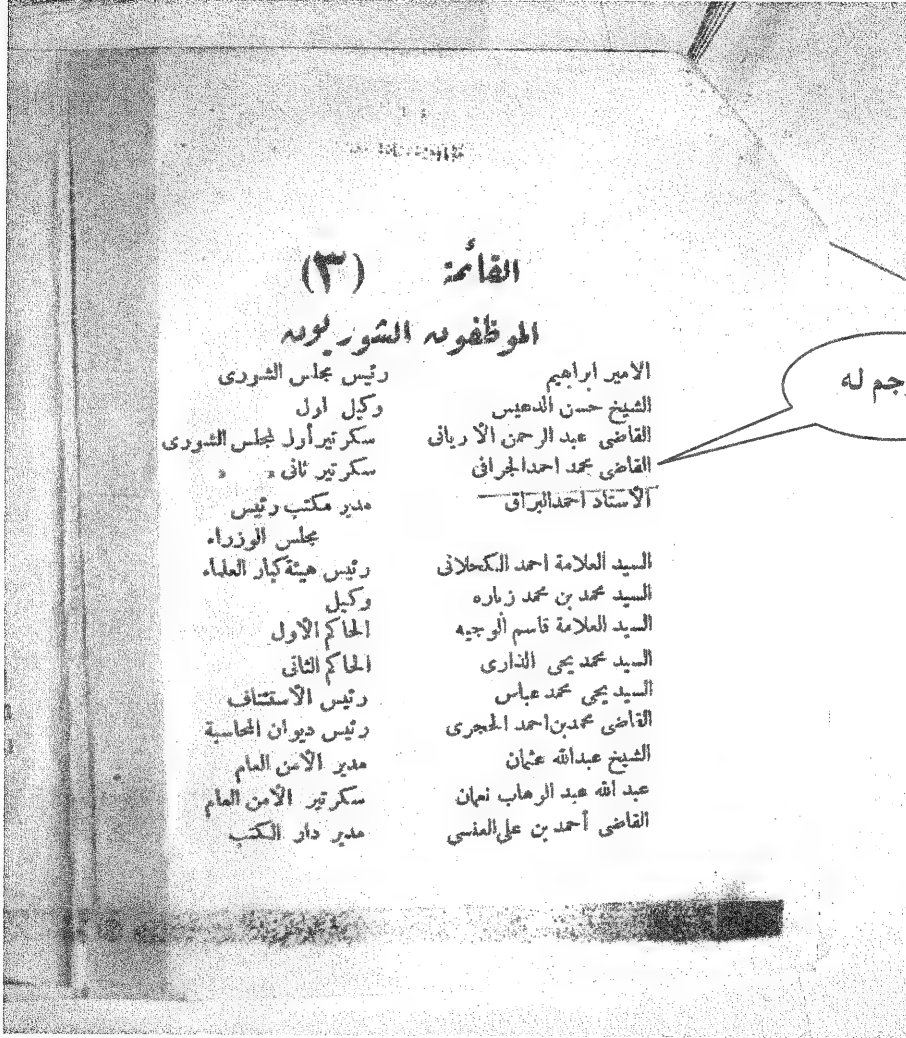 القائمة (٣)
الموظفون الشوريون
الامير ابراهيم رئيس مجلس الشورى
الشيخ حسن الدعيس وكيل اول
القاضى عبد الرحمن الأريانى سكرتير أول لمجلس الشورى
القاضى محمد احمد الجرافى سكرتير ثانى » »
الأستاذ احمد البراق مدير مكتب رئيس
مجلس الوزراء
السيد العلامة احمد الكحلانى رئيس هيئة كبار العلماء
السيد محمد بن محمد زباره وكيل
السيد العلامة قاسم الوجيه الحاكم الأول
السيد محمد يحى الذارى الحاكم الثانى
السيد يحى محمد عباس رئيس الأستئناف
القاضى محمد بن احمد الحجرى رئيس ديوان المحاسبة
الشيخ عبدالله عثمان مدير الأمن العام
عبد الله عبد الوهاب نعمان سكرتير الأمن العام
القاضى أحمد بن على العنسى مدير دار الكتب
جم له